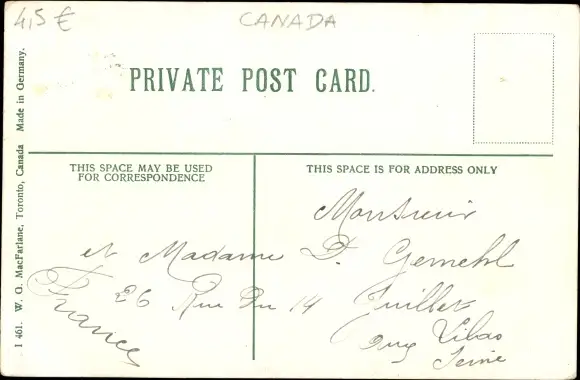 4,5 €
CANADA
PRIVATE POST CARD.
THIS SPACE MAY BE USED
FOR CORRESPONDENCE
THIS SPACE IS FOR ADDRESS ONLY
Monsieur
et Madame D.
26 Rue Du 14 Juillet
Lilas
Seine
France
I 461. W. G. MacFarlane, Toronto, Canada Made in Germany.